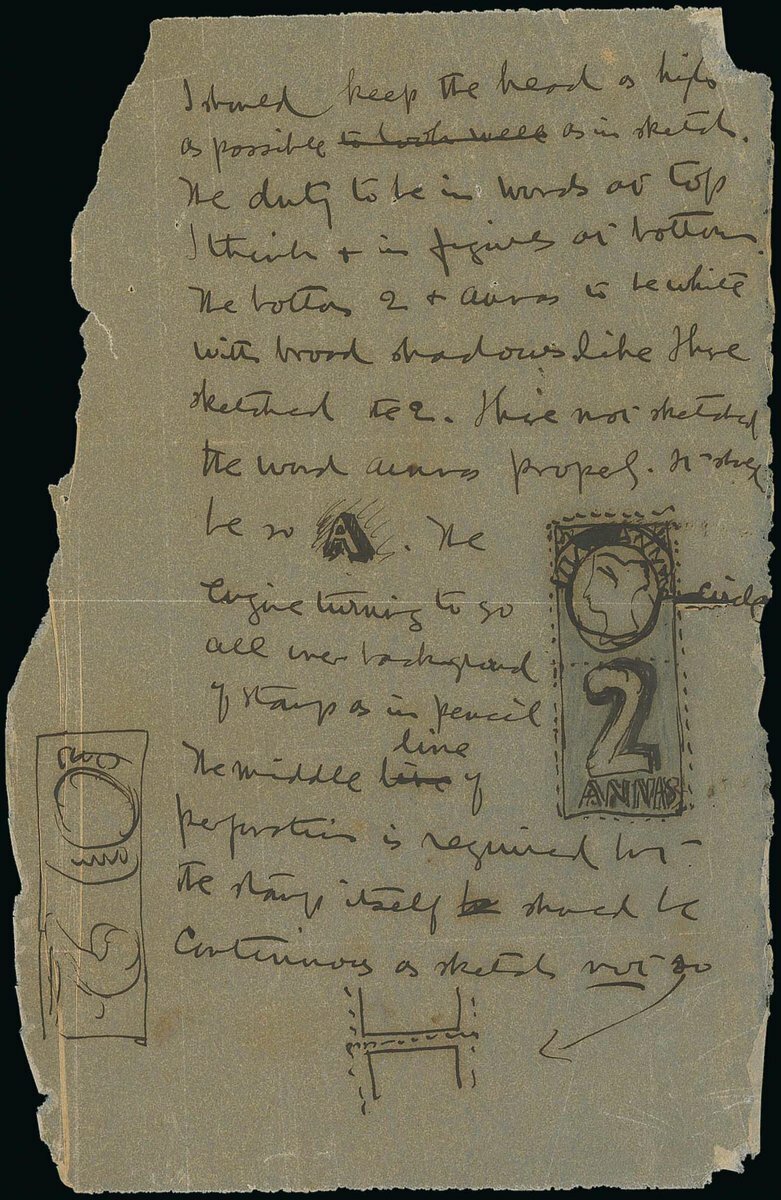 I should keep the head as high
as possible to look well as in sketch.
The duty to be in words at top
I think + in figures at bottom.
The bottom 2 + annas to be white
with broad shadows like I have
sketched the 2. I have not sketched
the word annas properly. It should
be so A. The
engine turning to go
all over background
of stamp as in pencil
circle
2
ANNAS
line
The middle line of
perforation is required but
the stamp itself be should be
continuous as sketch not so